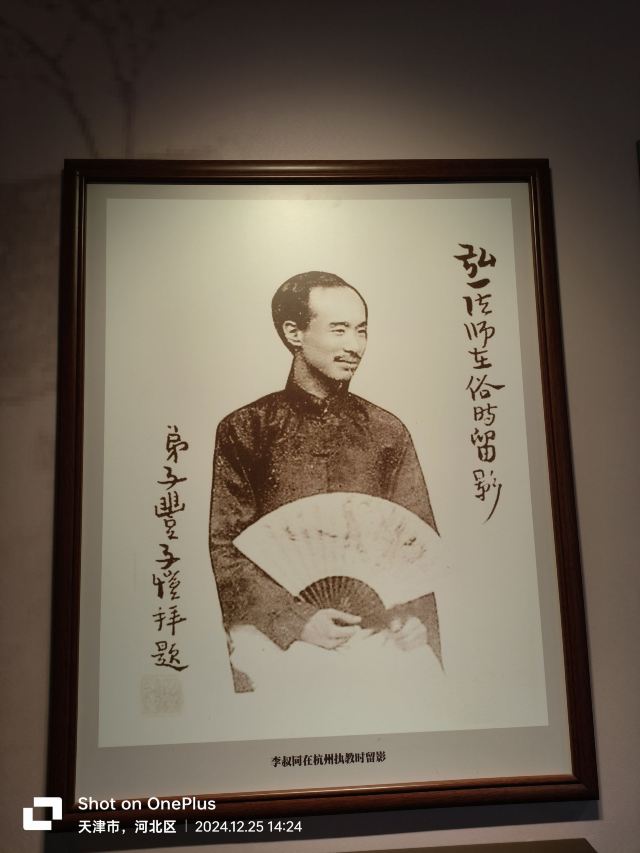 弘一法师在俗時留影
弟子豐子愷拜題
李叔同在杭州执教时留影
Shot on OnePlus
天津市，河北区 | 2024.12.25 14:24